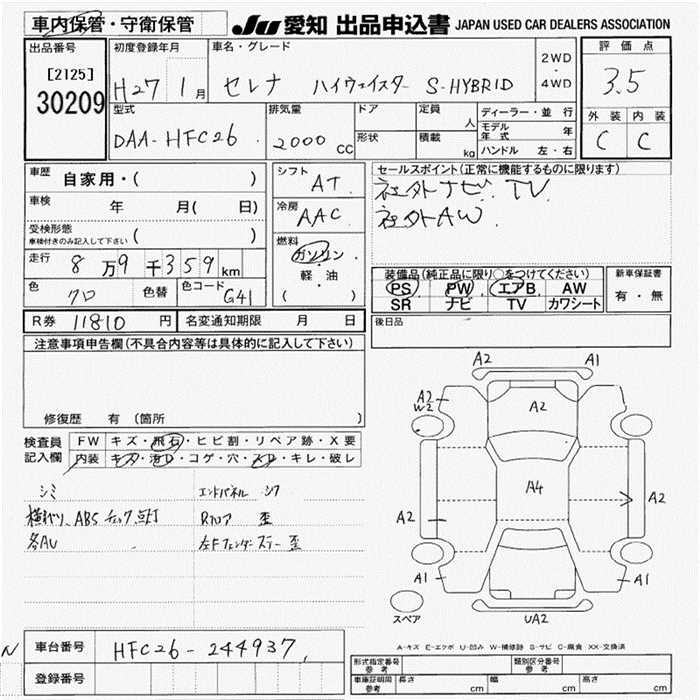 車内保管・守衛保管
JU 愛知 出品申込書 JAPAN USED CAR DEALERS ASSOCIATION
出品番号
[2125]
30209
初度登録年月
H27 1月
車名・グレード
セレナ ハイウェイスター S-HYBRID
2WD
・
4WD
評価点
3.5
外装 内装
C C
型式
DAA-HFC26
排気量
2000 CC
ドア
形状
定員 人
積載 kg
ディーラー・並行
モデル年式 年
ハンドル 左・右
車歴 自家用・( )
車検 年 月( 日)
受検形態
車検付きのみ記入して下さい ( )
走行 8万9千359km
色 クロ 色替 色コード G41
シフト AT
冷房 AAC
燃料
ガソリン
軽・油
( )
セールスポイント(正常に機能するものに限ります)
社外ナビ.TV
社外AW
装備品(純正品に限り○をつけてください)
PS PW エアB AW
SR ナビ TV カワシート
新車保証書
有・無
R券 11810円 名変通知期限 月 日
後日品
注意事項申告欄(不具合内容等は具体的に記入して下さい)
修復歴 有 (箇所 )
検査員記入欄
FW キズ・飛石・ヒビ割・リペア跡・X要
内装 キズ・汚レ・コゲ・穴・スレ・キレ・破レ
シミ
ABS チェック点灯
エンドパネル
Rフロア 歪
歪
A2 A1
A2
W2
A2
A4
A2 A2
A1 A1
UA2
スペア
A-キズ E-エクボ U-凹み W-補修跡 S-サビ C-腐食 XX-交換済
車台番号 HFC26-244937
登録番号
N
型式指定番号
参考
類別区分番号
参考
車庫証明用
参考
長さ cm 幅 cm 高さ cm